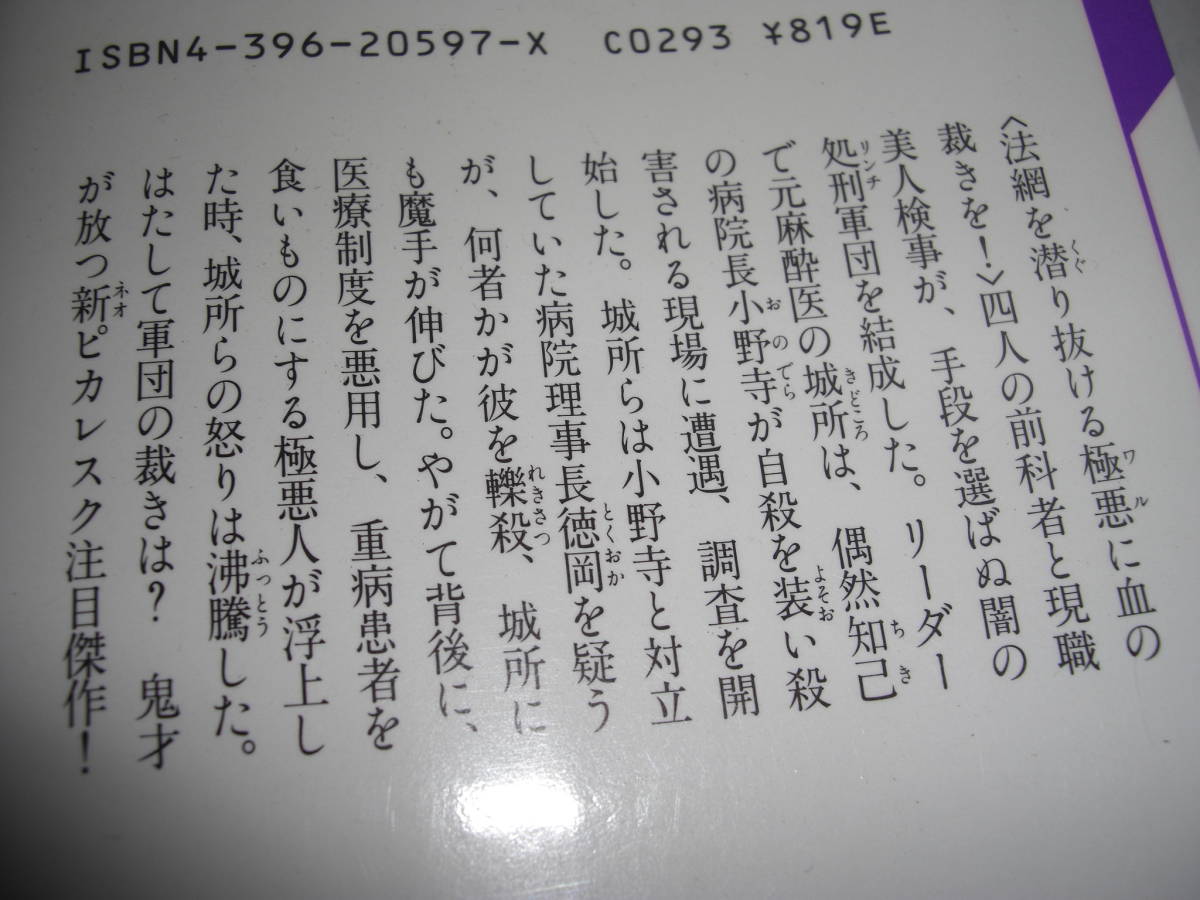 ISBN4-396-20597-X C0293 ¥819E
〈法網を潜り抜ける極悪に血の
裁きを！〉四人の前科者と現職
美人検事が、手段を選ばぬ闇の
処刑軍団を結成した。リーダー
で元麻酔医の城所は、偶然知己
の病院長小野寺が自殺を装い殺
害される現場に遭遇、調査を開
始した。城所らは小野寺と対立
していた病院理事長徳岡を疑う
が、何者かが彼を轢殺、城所に
も魔手が伸びた。やがて背後に、
医療制度を悪用し、重病患者を
食いものにする極悪人が浮上し
た時、城所らの怒りは沸騰した。
はたして軍団の裁きは？ 鬼才
が放つ新ピカレスク注目傑作！